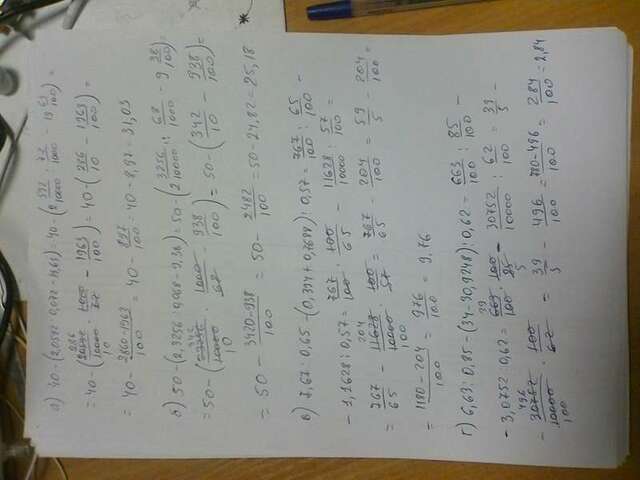 а) 40-(2,0592:0,072-19,63)=40-(2 592/10000 : 72/1000 - 19 63/100)=
=40-(20592/10000 286/10 · 1000/72 - 1963/100)=40-(286/10 - 1963/100)=
=40- 2860-1963/100 = 40- 897/100 = 40-8,97=31,03
б) 50-(2,3256:0,068-9,38)=50-(2 3256/10000 : 68/1000 - 9 38/100)=
=50-(23256/10000 342/10 · 1000/68 - 938/100)=50-(342/10 - 938/100)=
=50- 3420-938/100 = 50- 2482/100 =50-24,82=25,18
в) 7,67:0,65-(0,394+0,7688):0,57= 767/100 : 65/100 -
-1,1628:0,57= 767/100 · 100/65 - 11628/10000 : 57/100 =
= 767/65 - 11628/10000 204/100 · 100/57 = 767/65 - 204/100 = 59/5 - 204/100 =
= 1180-204/100 = 976/100 = 9,76
г) 6,63:0,85-(34-30,9248):0,62= 663/100 : 85/100 -
-3,0752:0,62= 663/100 39 · 100/85 5 - 30752/10000 : 62/100 = 39/5 -
- 30752/10000 496/100 · 100/62 = 39/5 - 496/100 = 780-496/100 = 284/100 =2,84